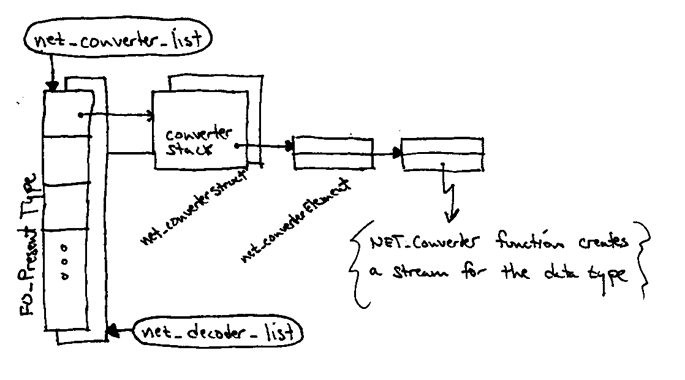 net_converter_list
converter
stack
net_converterStruct
net_converterElement
FO_Present Type
{ NET_Converter function creates
a stream for the data type }
net_decoder_list